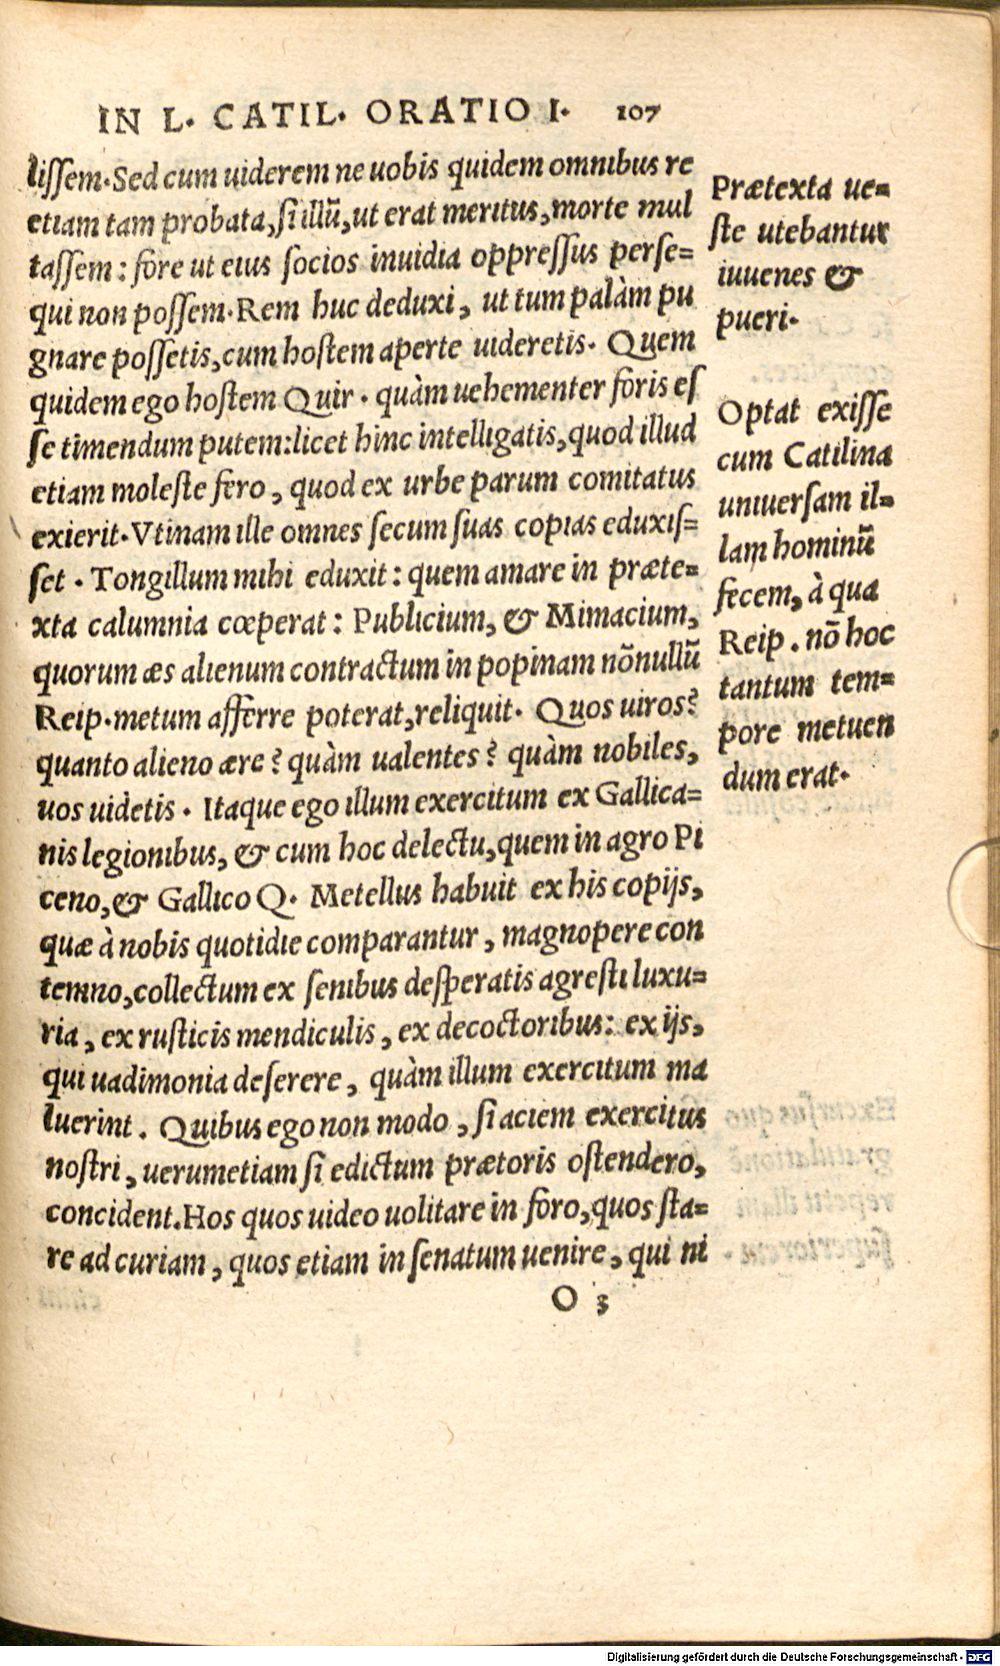 IN L. CATIL. ORATIO I. 107
lissem. Sed cum uiderem ne uobis quidem omnibus re
etiam tam probata, si illũ, ut erat meritus, morte mul
tassem: fore ut eius socios inuidia oppressus perse=
qui non possem. Rem huc deduxi, ut tum palàm pu
gnare possetis, cum hostem aperte uideretis. Quem
quidem ego hostem Quir. quàm uehementer foris es
se timendum putem: licet hinc intelligatis, quod illud
etiam moleste fero, quod ex urbe parum comitatus
exierit. Vtinam ille omnes secum suas copias eduxis=
set. Tongillum mihi eduxit: quem amare in præte=
xta calumnia cœperat: Publicium, & Mimacium,
quorum æs alienum contractum in popinam nõnullũ
Reip. metum afferre poterat, reliquit. Quos uiros?
quanto alieno ære? quàm ualentes? quàm nobiles,
uos uidetis. Itaque ego illum exercitum ex Gallica=
nis legionibus, & cum hoc delectu, quem in agro Pi
ceno, & Gallico Q. Metellus habuit ex his copijs,
quæ à nobis quotidie comparantur, magnopere con
temno, collectum ex senibus desperatis agresti luxu=
ria, ex rusticis mendiculis, ex decoctoribus: ex ijs,
qui uadimonia deserere, quàm illum exercitum ma
luerint. Quibus ego non modo, si aciem exercitus
nostri, uerumetiam si edictum prætoris ostendero,
concident. Hos quos uideo uolitare in foro, quos sta=
re ad curiam, quos etiam in senatum uenire, qui ni
O 3
Prætexta ue=
ste utebantur
iuuenes &
pueri.
Optat exisse
cum Catilina
uniuersam il=
lam hominũ
fecem, à qua
Reip. nõ hoc
tantum tem=
pore metuen
dum erat.
Digitalisierung gefördert durch die Deutsche Forschungsgemeinschaft - DFG